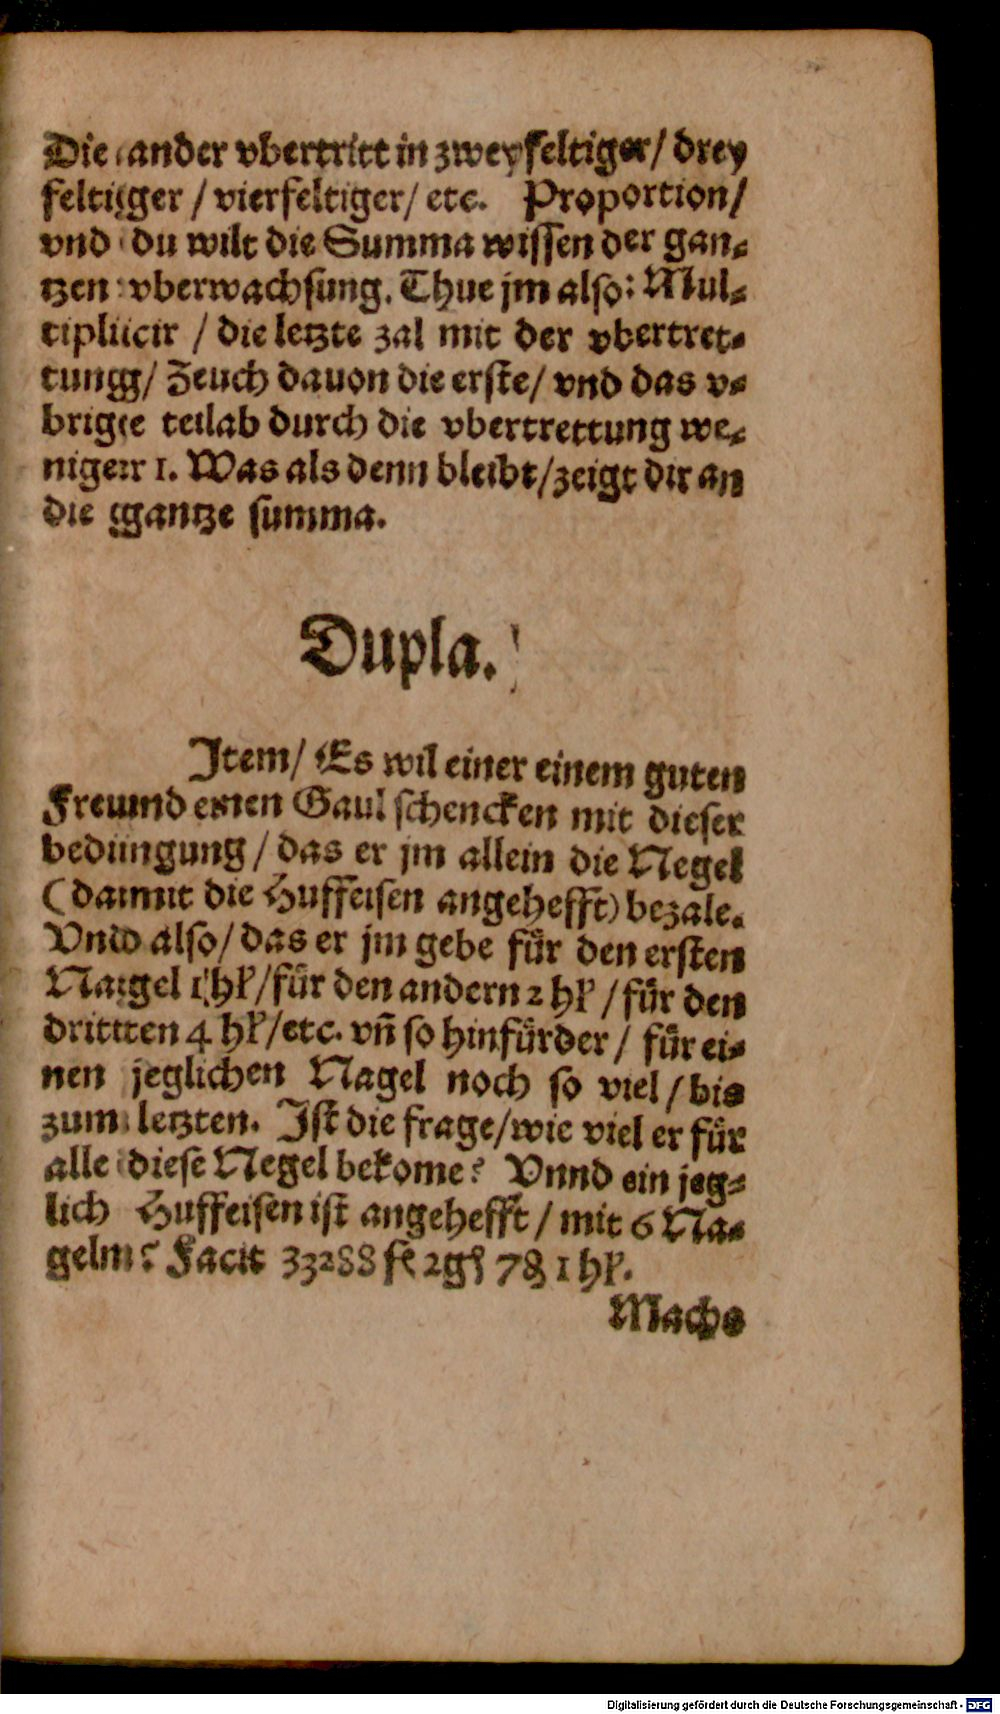 Die ander vbertritt in zweyfeltiger/ drey
feltiger / vierfeltiger/ etc. Proportion/
vnd du wilt die Summa wissen der gan⸗
tzen vberwachsung. Thue jm also: Mul⸗
tiplicir / die letzte zal mit der vbertret⸗
tung/ Zeuch dauon die erste/ vnd das v⸗
brige teil ab durch die vbertrettung we⸗
niger 1. Was als denn bleibt/zeigt dir an
die gantze summa.
Dupla.
Item/ Es wil einer einem guten
Freund einen Gaul schencken mit dieser
bedingung/ das er jm allein die Negel
(damit die Huffeisen angehefft) bezale.
Vnd also/ das er jm gebe fuͤr den ersten
Nagel 1 hl/fuͤr den andern 2 hl / fuͤr den
dritten 4 hl/etc. vñ so hinfuͤrder/ fuͤr ei⸗
nen jeglichen Nagel noch so viel/ bis
zum letzten. Ist die frage/wie viel er fuͤr
alle diese Negel bekome? Vnnd ein jeg⸗
lich Huffeisen ist angehefft/ mit 6 Na⸗
geln? Facit 33288 fl 2 gℓ 7 ₰ 1 hl.
Machs
Digitalisierung gefördert durch die Deutsche Forschungsgemeinschaft - DFG